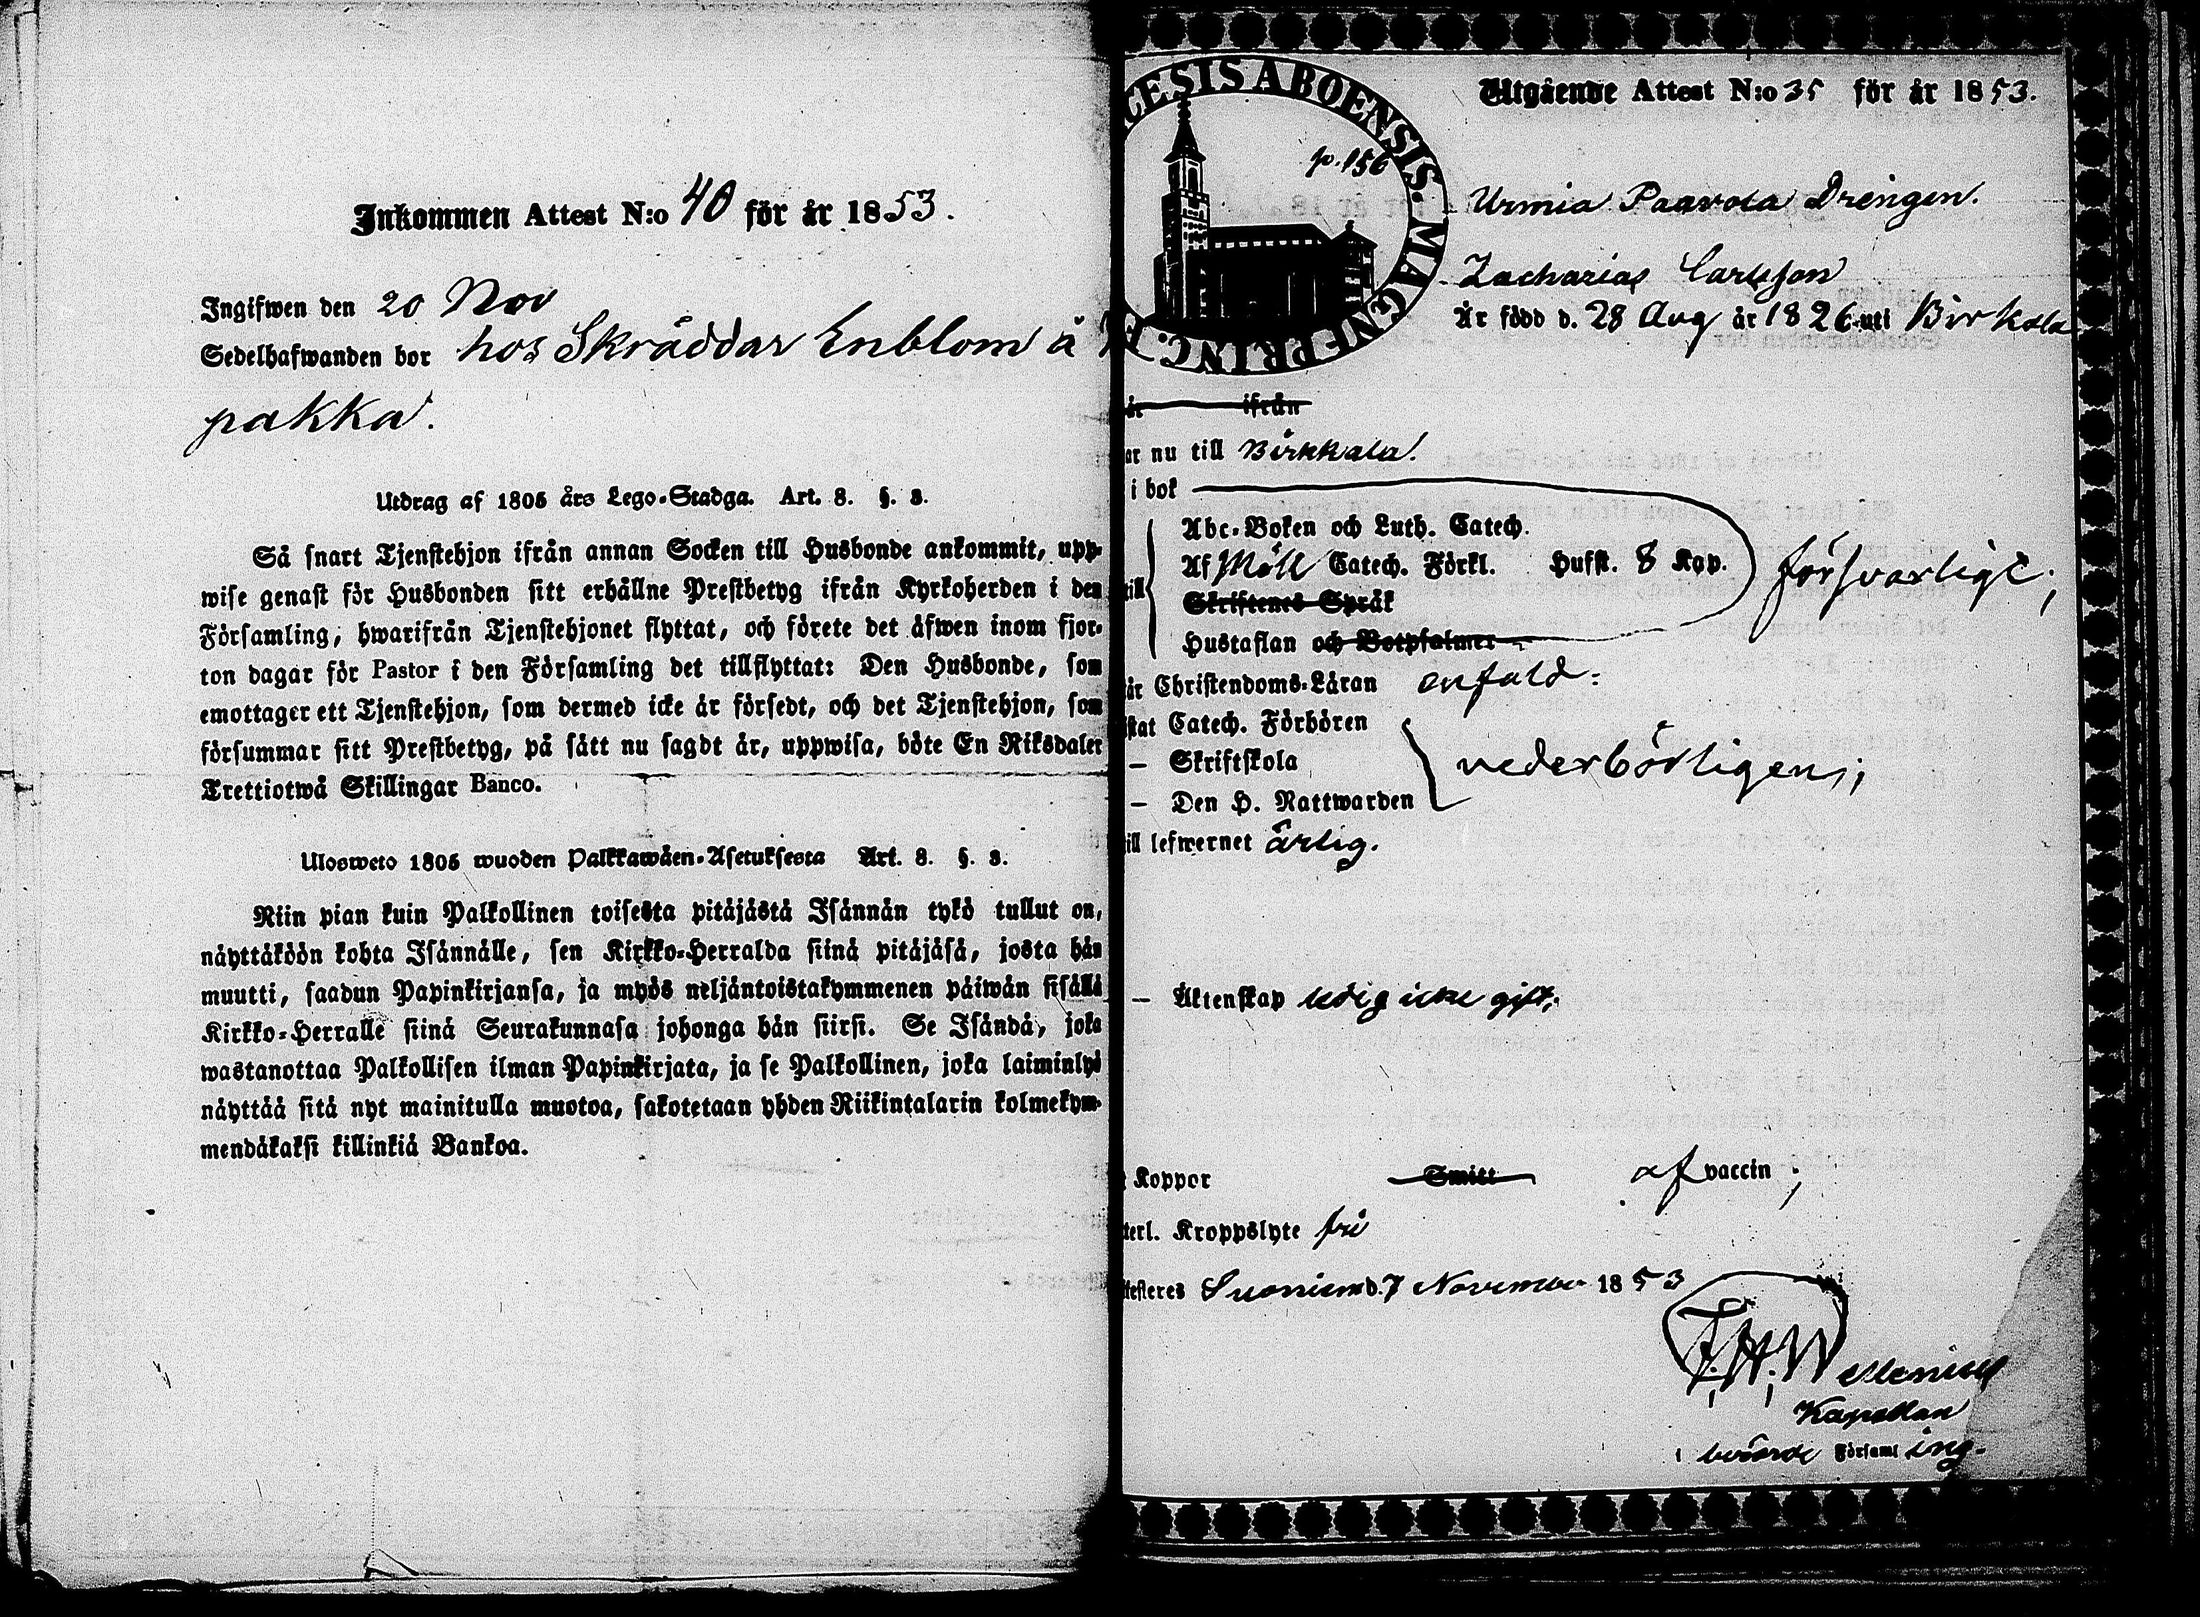 Inkommen Attest N:o 40 för år 1853.
Ingifwen den 20 Nov
Sedelhafwanden bor hos Skräddar Enblom å
pakka.
Utdrag af 1805 års Lego-Stadga. Art. 8. §. 3.
Så snart Tjenstehjon ifrån annan Socken till Husbonde ankommit, upp-
wise genast för Husbonden sitt erhållne Prestbetyg ifrån Kyrkoherden i den
Församling, hwarifrån Tjenstehjonet flyttat, och förete det äfwen inom fjor-
ton dagar för Pastor i den Församling det tillflyttat: Den Husbonde, som
emottager ett Tjenstehjon, som dermed icke är försedt, och det Tjenstehjon, som
försummar sitt Prestbetyg, på sätt nu sagdt är, uppwisa, böte En Riksdaler
Trettiotwå Skillingar Banco.
Ulosweto 1805 wuoden Palkkawäen-Asetuksesta Art. 8. §. 3.
Niin pian kuin Palkollinen toisesta pitäjästä Isännän tykö tullut on,
näyttäköön kohta Isännälle, sen Kirkko-Herralda siinä pitäjäsä, josta hän
muutti, saadun Papinkirjansa, ja myös neljäntoistakymmenen päiwän sisällä
Kirkko-Herralle siinä Seurakunnasa johonga hän siirsi. Se Isändä, joka
wastanottaa Palkollisen ilman Papinkirjata, ja se Palkollinen, joka laiminlyö
näyttää sitä nyt mainitulla muotoa, sakotetaan yhden Riikintalarin kolmekym-
mendäkaksi killinkiä Bankoa.
TESIS ABOENSIS. MAGNE PRINC. F
p. 156
Utgående Attest N:o 35 för år 1853.
Urmia Paavola Drengen.
Zacharias Carlsson
Är född d. 28 Aug år 1826 uti Birkala
år ifrån
ar nu till Birkkala.
i bok
Abc-Boken och Luth. Catech.
till Af Möll Catech. Förkl. Hufst. 8 Kap. försvarligt;
Skriftenes Språk
Hustaflan och Botpsalmer
år Christendoms-Läran enfald:
stat Catech. Förhören
— Skriftskola vederbörligen;
— Den H. Nattwarden
till lefwernet ärlig.
— Äktenskap ledig icke gift;
Koppor Smitt af vaccin;
terl. Kroppslyte fri
ttesteres Suoniem d. 7 November 1853
Kapellan
i berörde Församling.